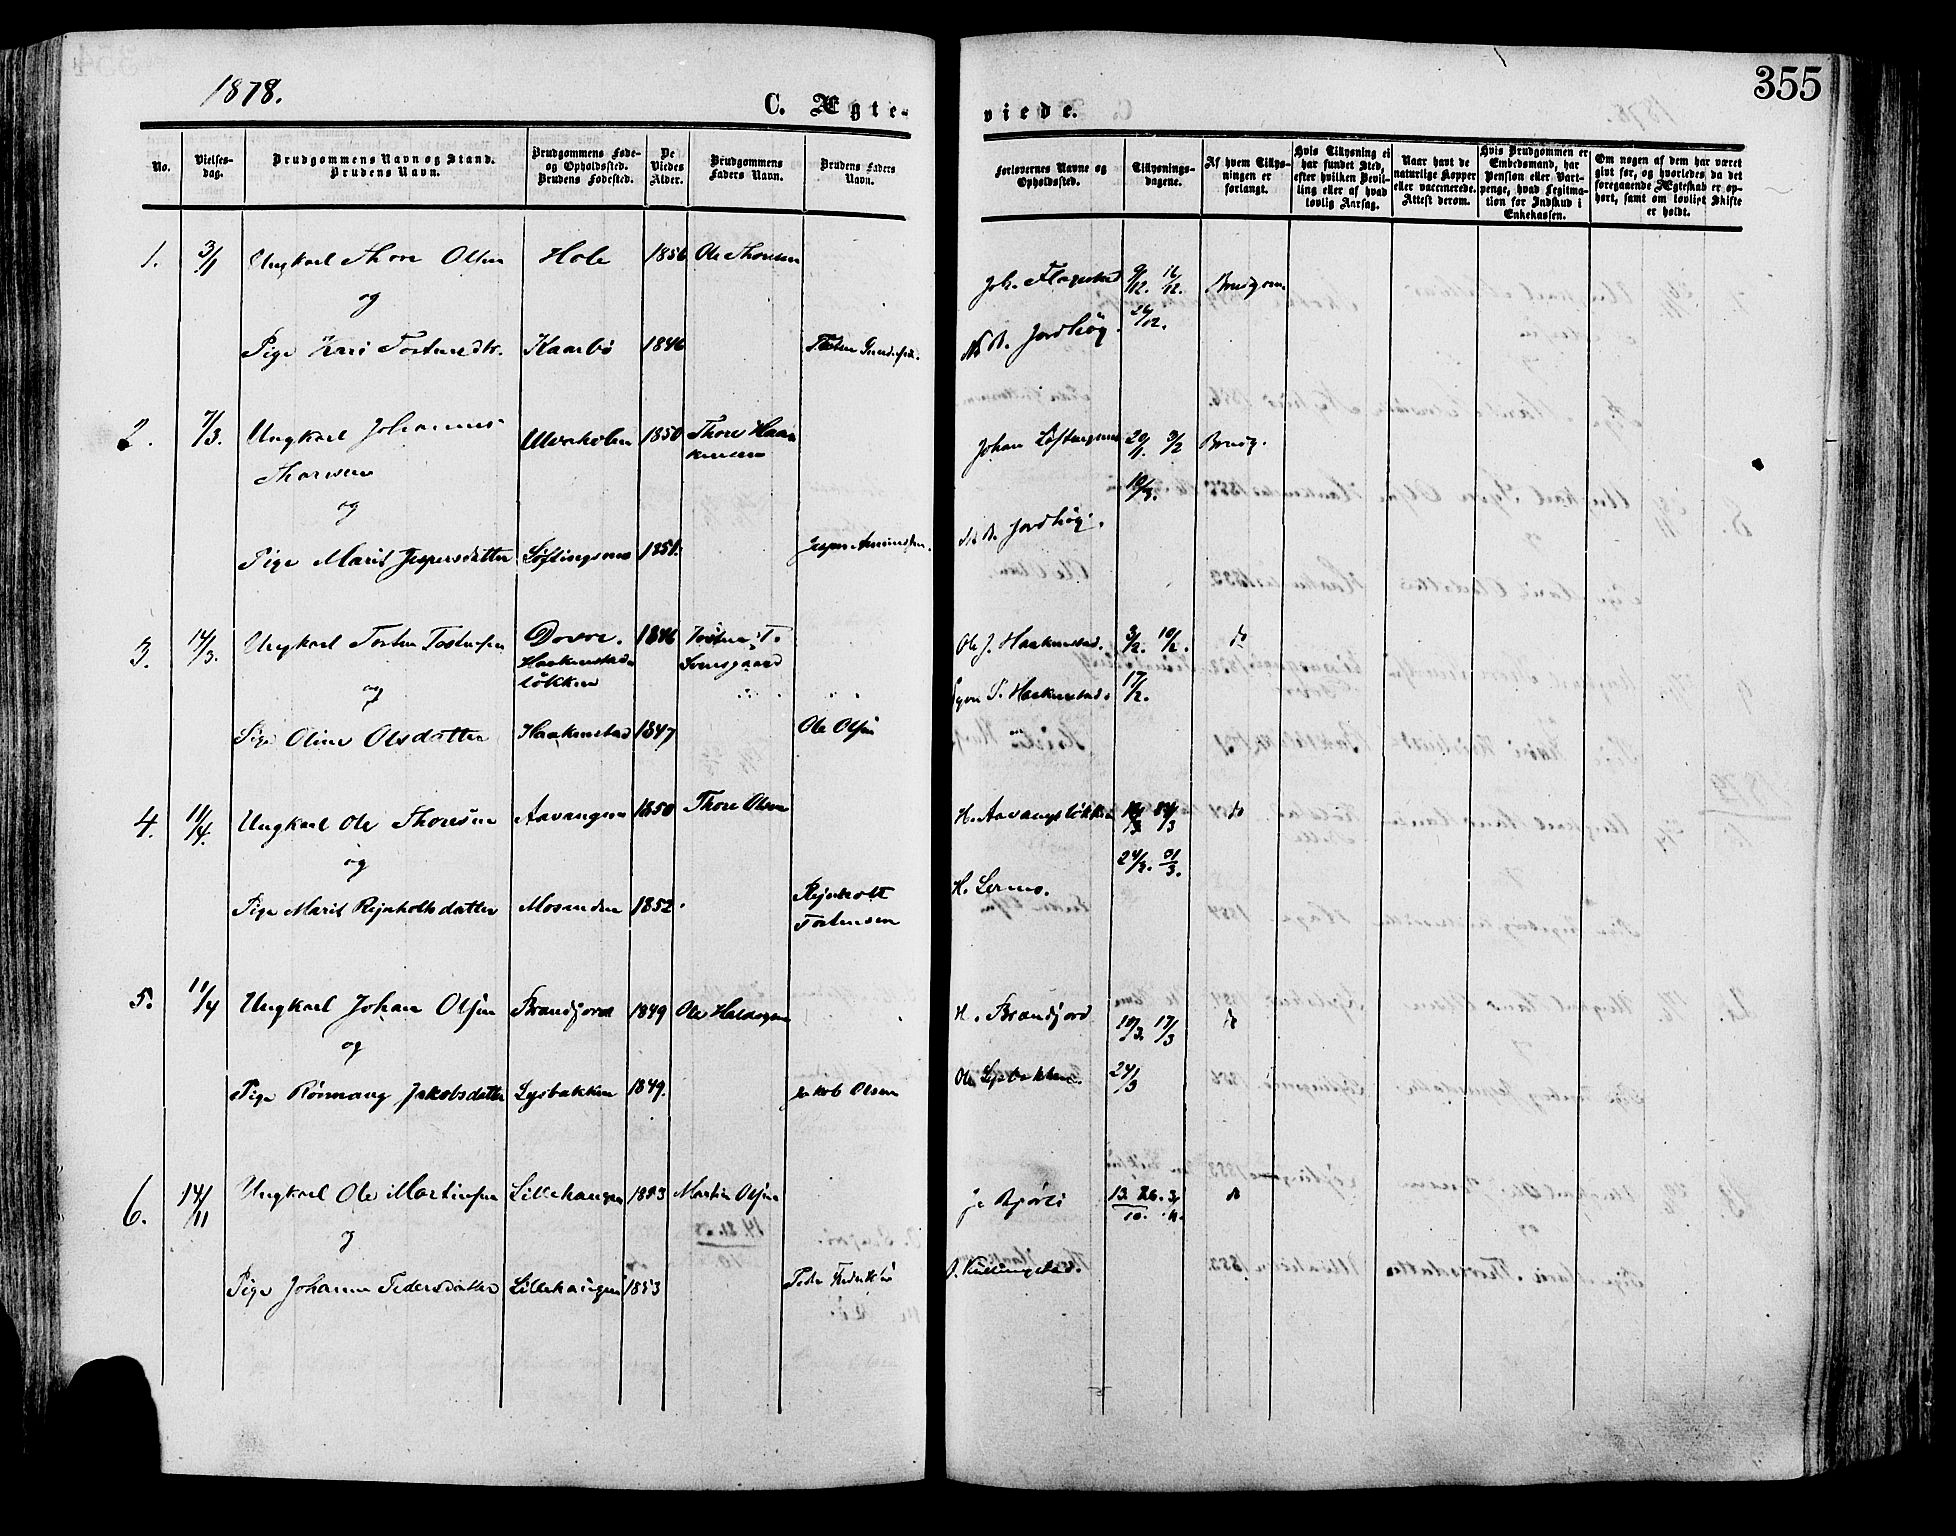 1878.
C. Ægteviede.
355
No.
Vielsesdag.
Brudgommens Navn og Stand.
Brudens Navn.
Brudgommens Føde-
og Opholdssted.
Brudens Fødested.
De
Viedes
Alder.
Brudgommens
Faders Navn.
Brudens Faders
Navn.
Forlovernes Navne og
Opholdssted.
Tillysnings-
dagene.
Af hvem Tillys-
ningen er
forlangt.
Hvis Tillysning ei
har fundet Sted,
efter hvilken Bevil-
ling eller af hvad
lovlig Aarsag.
Naar havt de
naturlige Kopper
eller vaccinerede.
Attest derom.
Hvis Brudgommen er
Embedsmand, har
Pension eller Vart-
penge, hvad Legitima-
tion for Indskud i
Enkekassen.
Om nogen af dem har været
givt før, og hvorledes da det
foregaaende Ægteskab er op-
hørt, samt om lovligt Skifte
er holdt.
1. 3/1 Ungkarl Thore Olsen Hole 1856 Ole Thoresen
Joh. Flagestad 9/12. 16/12. Brudgom.
og
26/12.
Pige Kari Tostensdtr. Kaarbø 1846
N. B. Jordhøg
2. 7/3. Ungkarl Johannes Ulveholen 1850 Thore Haa-
kensen
Thoresen
Johan Løftingsmo 3/2 Brudg.
og
10/2.
N. B. Jordhøg.
Pige Marit Jespersdatter Løftingsmo 1851.
3. 14/3. Ungkarl Tosten Tostensen Dovre. 1846
Haakenstad-
løkken
Ole J. Haakenstad. 3/2. 10/2. do
og
P. Haakenstad. 17/2.
Pige Oline Olsdatter Haakenstad 1847 Ole Olsen
4. 11/4. Ungkarl Ole Thoresen Aavangen 1850 Thore Olsen
H. Aavangsløkken do
og
24/3. 31/3.
H. Lermo.
Pige Marit Rejnholtsdatter Mosenden 1852. Rejnholt
Tostensen
5. 11/4 Ungkarl Johan Olsen Brandjord 1849 Ole
H. Brandjord 10/3. 17/3 do
og
Ole Lysbakken. 24/3
Pige Rønnaug Jakobsdatter Lysbakken 1849. Jakob Olsen
6. 14/11 Ungkarl Ole Martinsen Lillehaugen 1853 Martin Olsen
13. 26. 3/11. do
10.
og
Pige Johanne Pedersdatter Lillehaugen 1853 Peder
P. Killingstad.